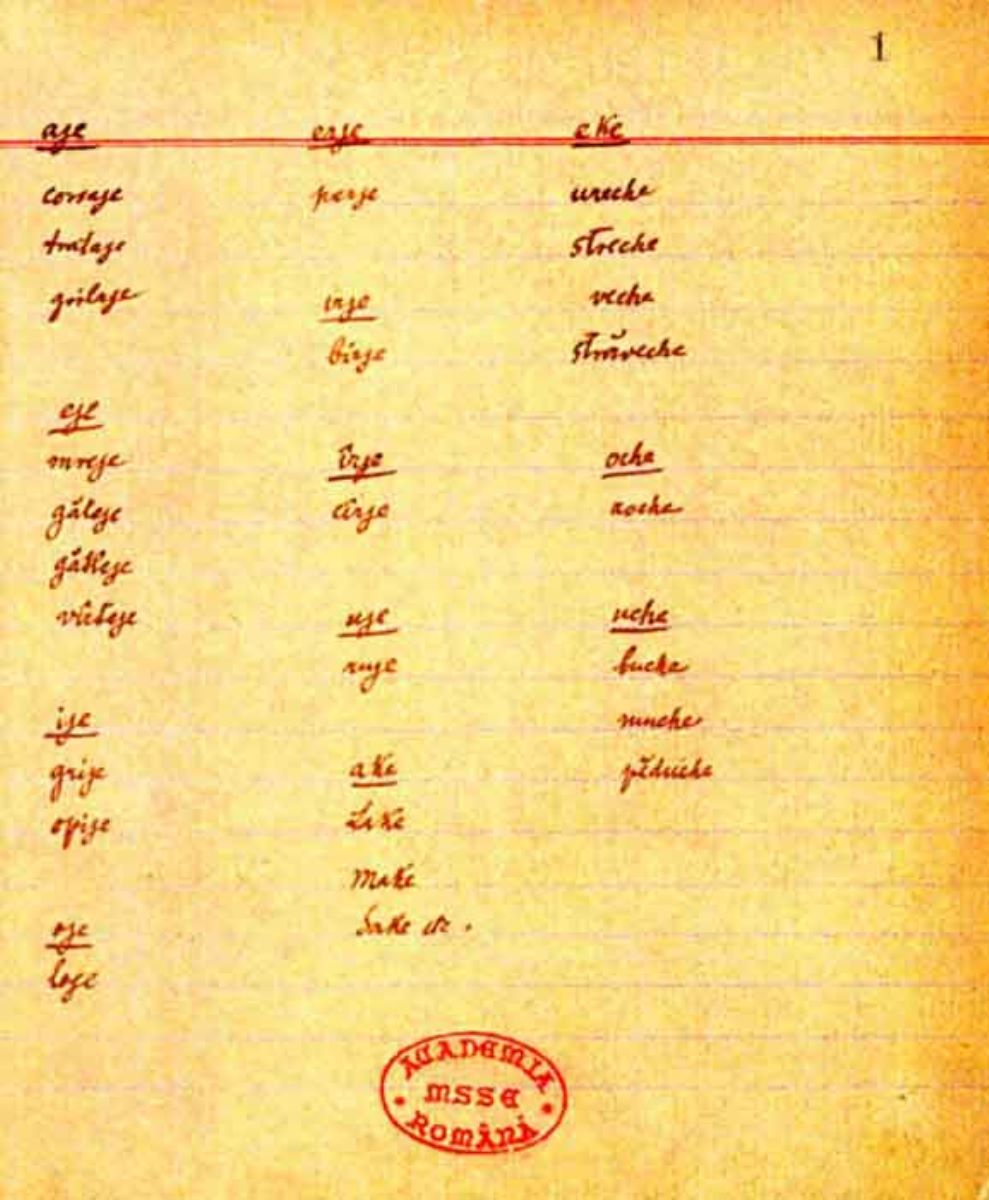 1
aje
corsaje
trataje
grilaje
eje
mreje
găteje
gătleje
vîrteje
ije
grije
opije
oje
loje
erje
perje
irje
birje
îrje
cîrje
uje
ruje
ake
Lake
Make
Sake etc.
eke
ureche
streche
veche
străveche
oche
roche
uche
buche
muche
pĕduche
ACADEMIA
MSSE
ROMÂNĂ